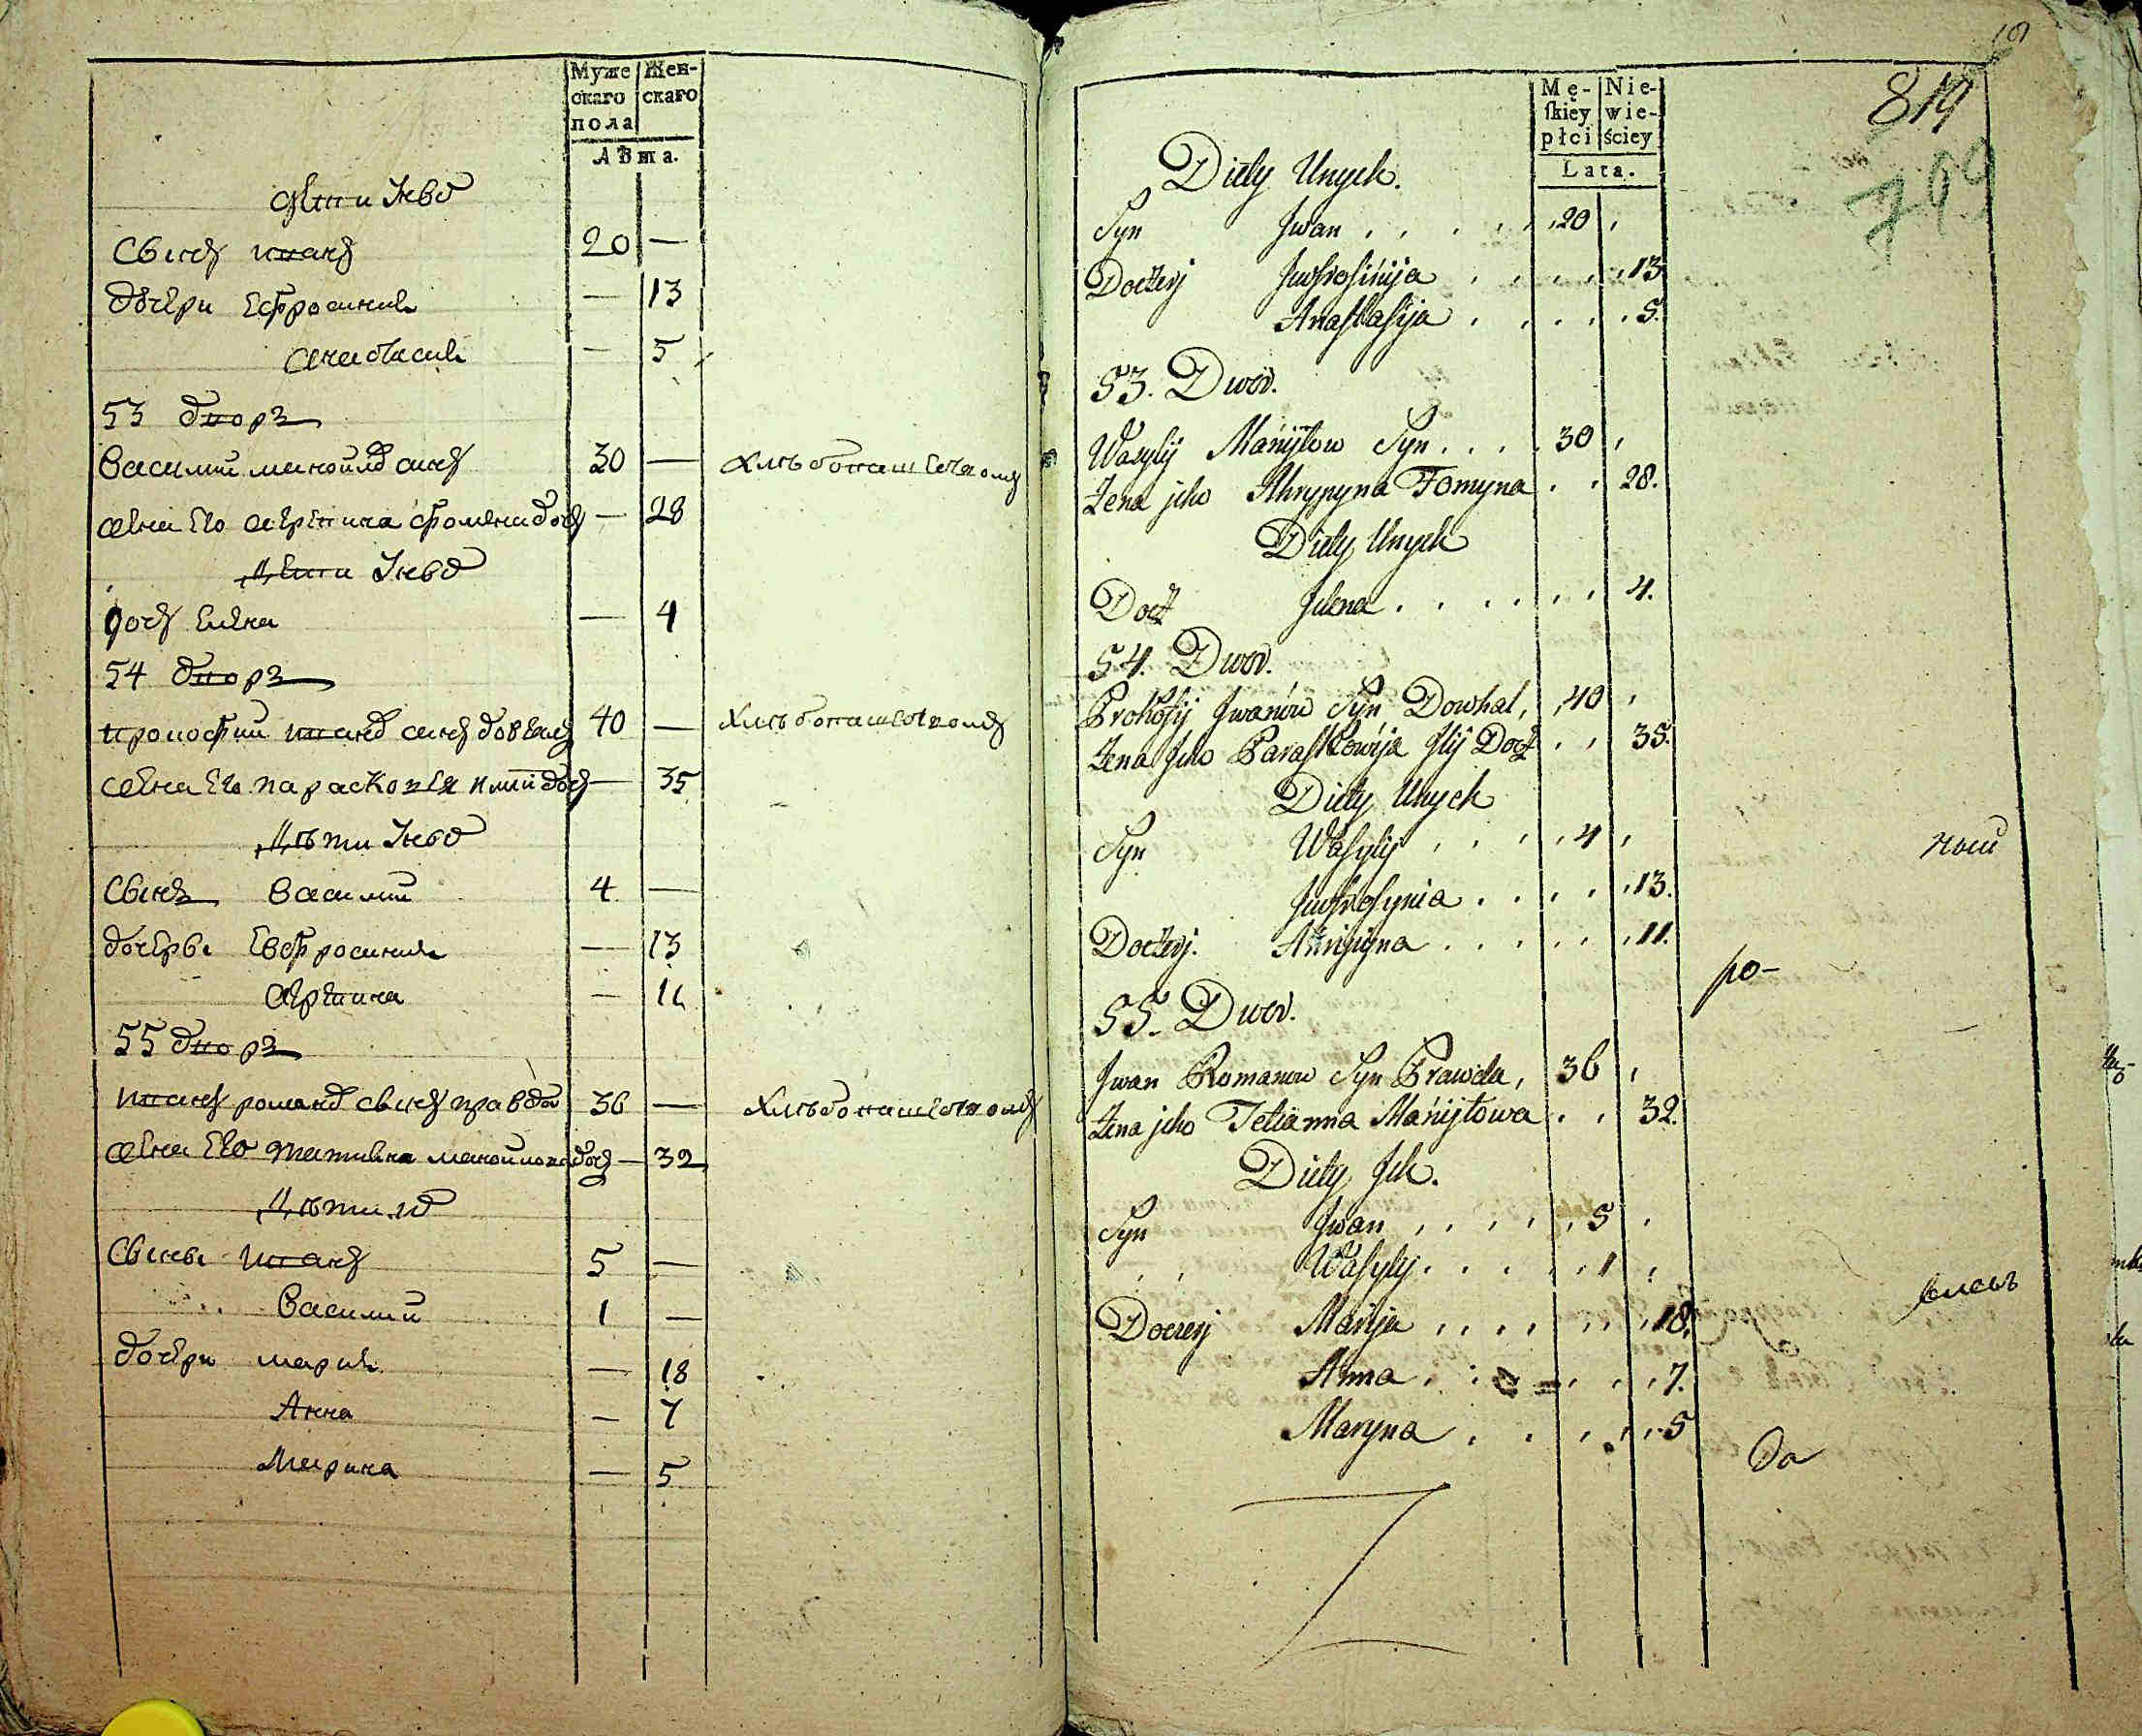 Муже
скаго
пола
Жен-
скаго
Лѣта.
Дети Унвхъ
Сынъ иванъ 20 —
дочери Ефросиния — 13
анастасия — 5
53 дворъ
Василий манойловъ синъ 30 — хлѣбопашествомъ
жена Его агрепина фомена дочъ — 28
Дети Унвхъ
дочъ Елена — 4
54 дворъ
прокофий ивановъ синъ довгалъ 40 — хлѣбопашествомъ
жена Его парасковея илии дочъ — 35
Дѣти Унвхъ
Сынъ Василий 4 —
дочеры Евфросиния — 13
агрепина — 11
55 дворъ
иванъ романовъ сынъ правда 36 — хлѣбопашествомъ
жена Его татияна манойлова дочъ — 32
Дѣти ихъ
Сыны иванъ 5 —
Василий 1 —
дочери мария — 18
Анна — 7
Марина — 5
819
Mę-
skiey
płci
Nie-
wie-
ściey
Lata.
Diety Unych.
Syn Jwan 20
Doczerj Jwfrosinija 13
Anastasija 5.
53. Dwor.
Wasylij Manijłow Syn 30
Żena jeho Ahrypyna Fomyna 28.
Diety Unych
Docz Jelena 4.
54. Dwor.
Prokofij Jwanow Syn Dowhal, 40
Żena Jeho Paraskowija Jlij Docz 35.
Diety Unych
Syn Wasylij 4
Jwfrosynia 13.
Doczerj. Ahripyna 11.
55. Dwor.
Jwan Romanow Syn Prawda, 36
Żena jeho Tetianna Manijłowa 32.
Diety Jch.
Syn Jwan 5
Wasylij 1
Doczerj Marija 18.
Anna 7.
Maryna 5
ро-
да